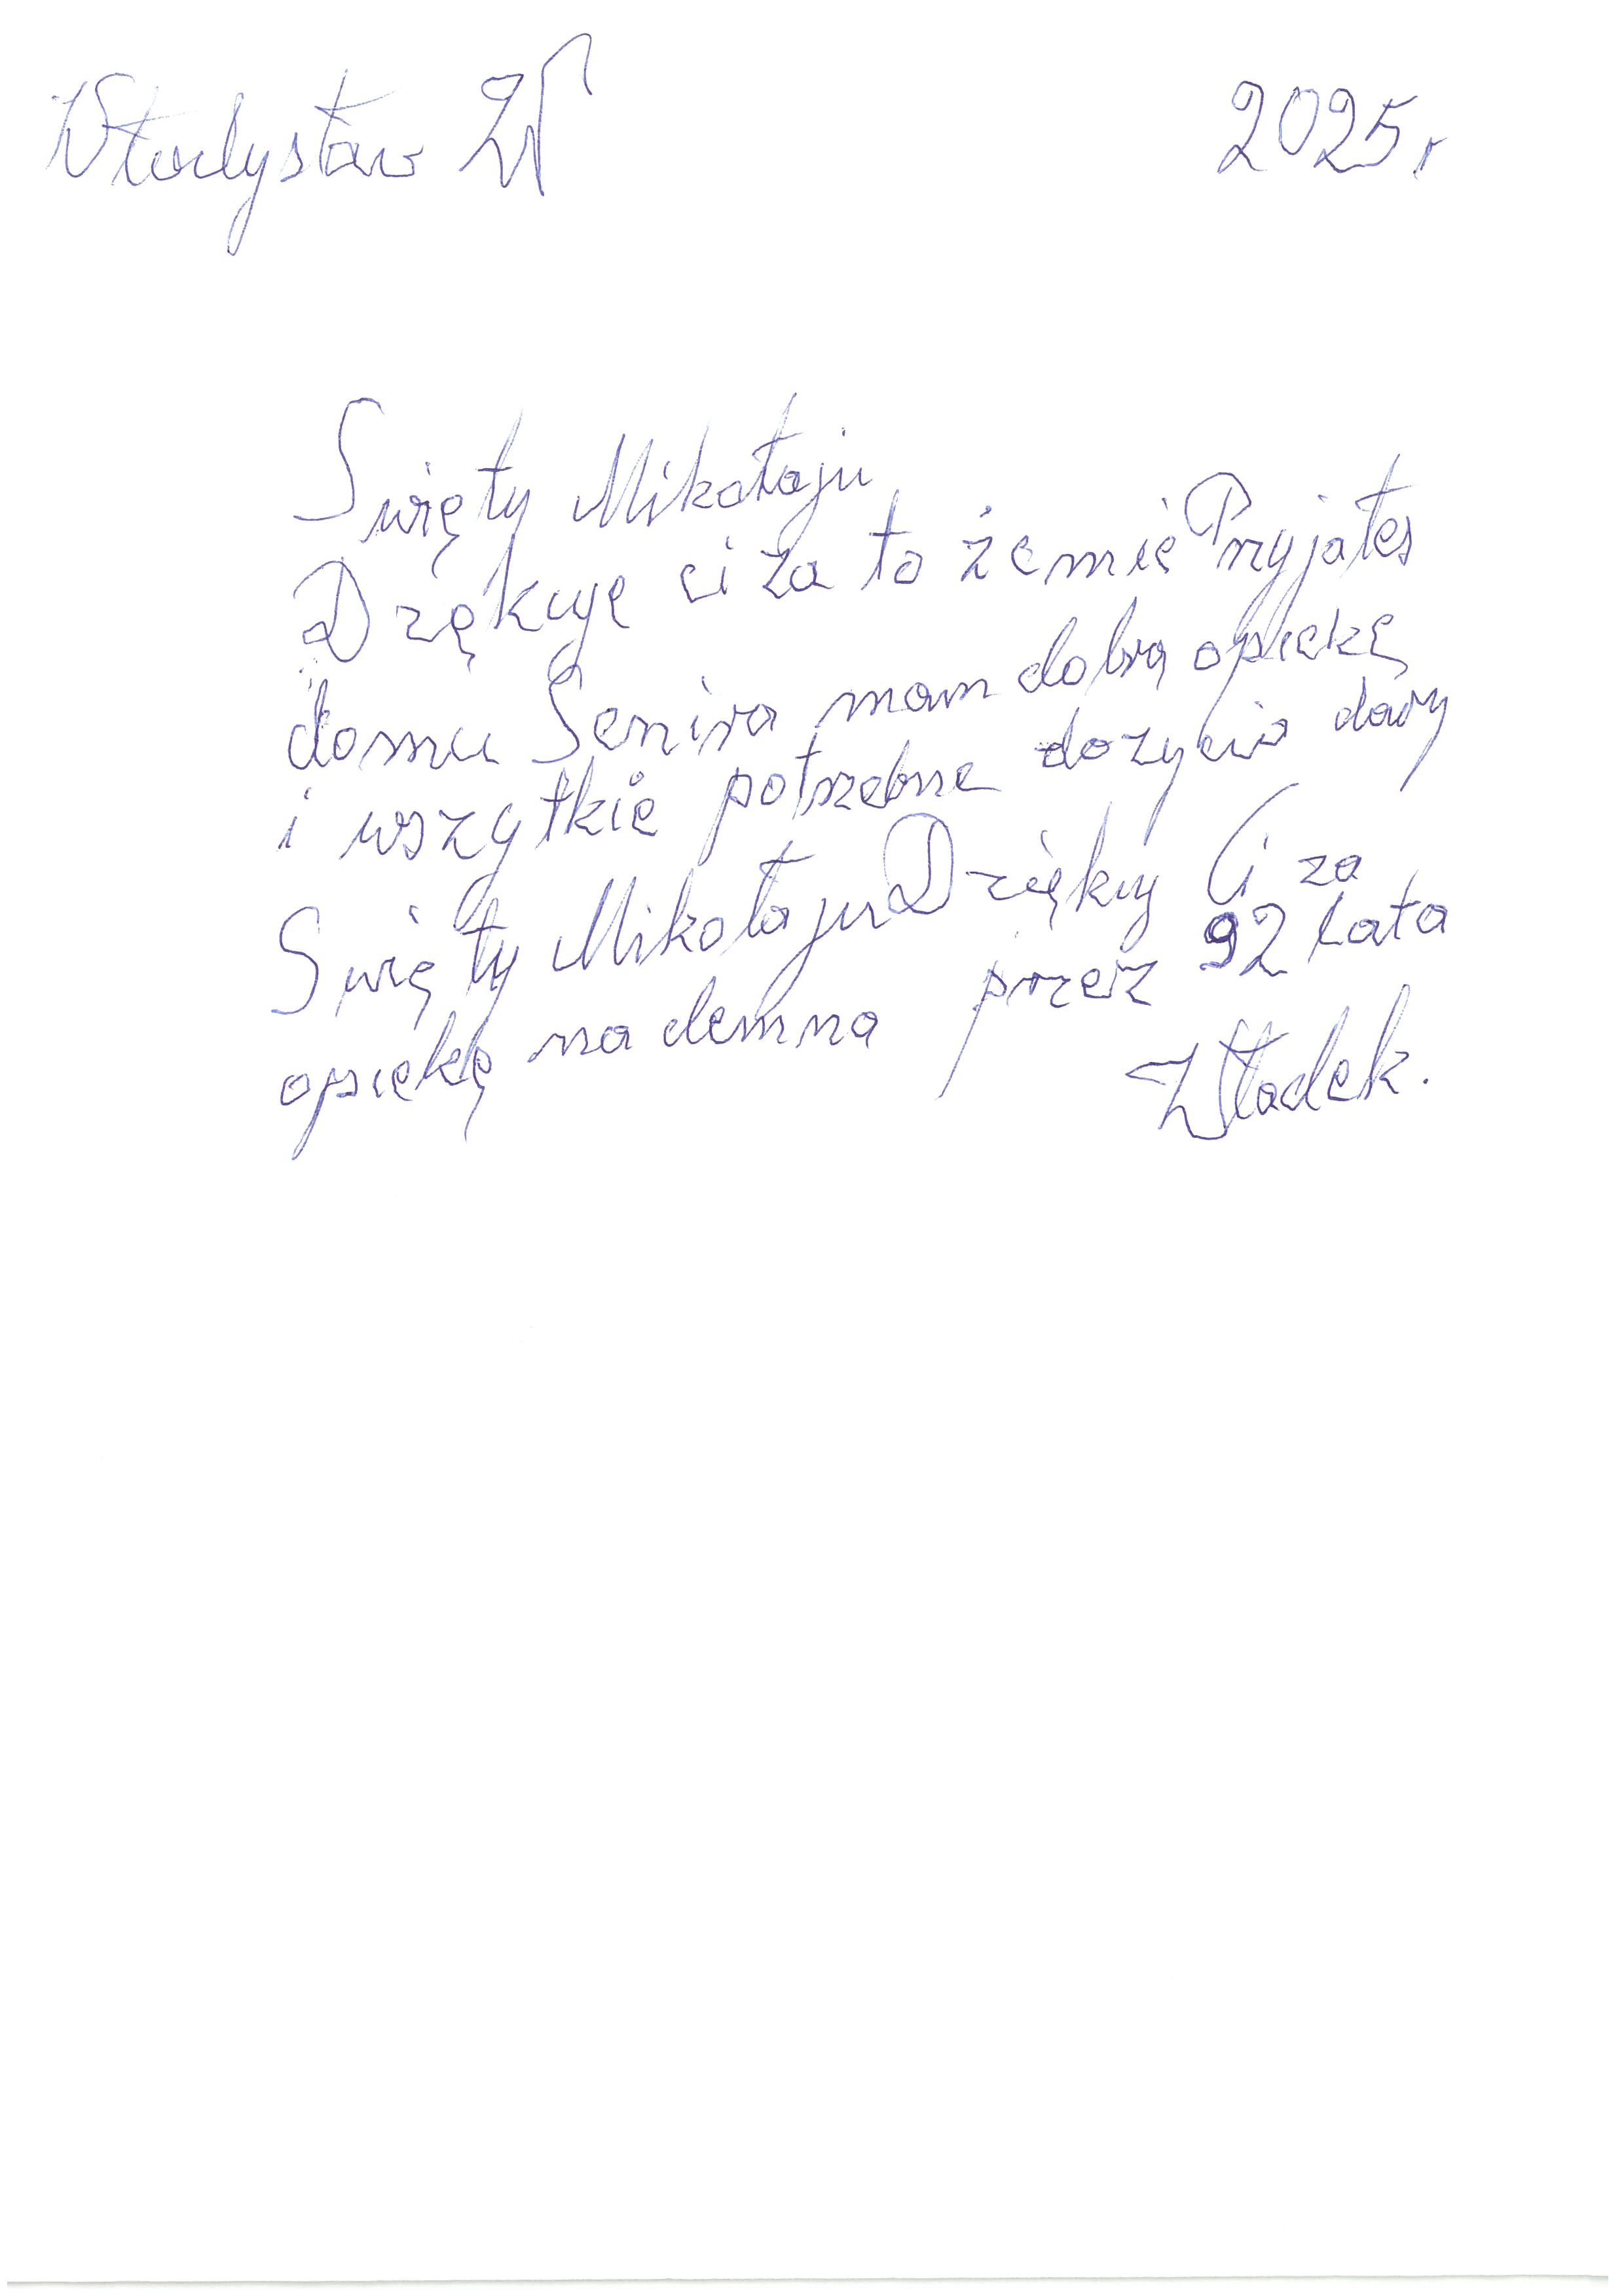 Władysław ZW 2025r
Swięty Mikołaju
Dzękuję ci za to że mię Przyjąłeś
domu Seniora mam dobrą opiekę
i wszytkie potrzebne do zycia dary
Swięty Mikołaju Dziękuj Ci za
opiekę na demną przez 92 lata
Władek.